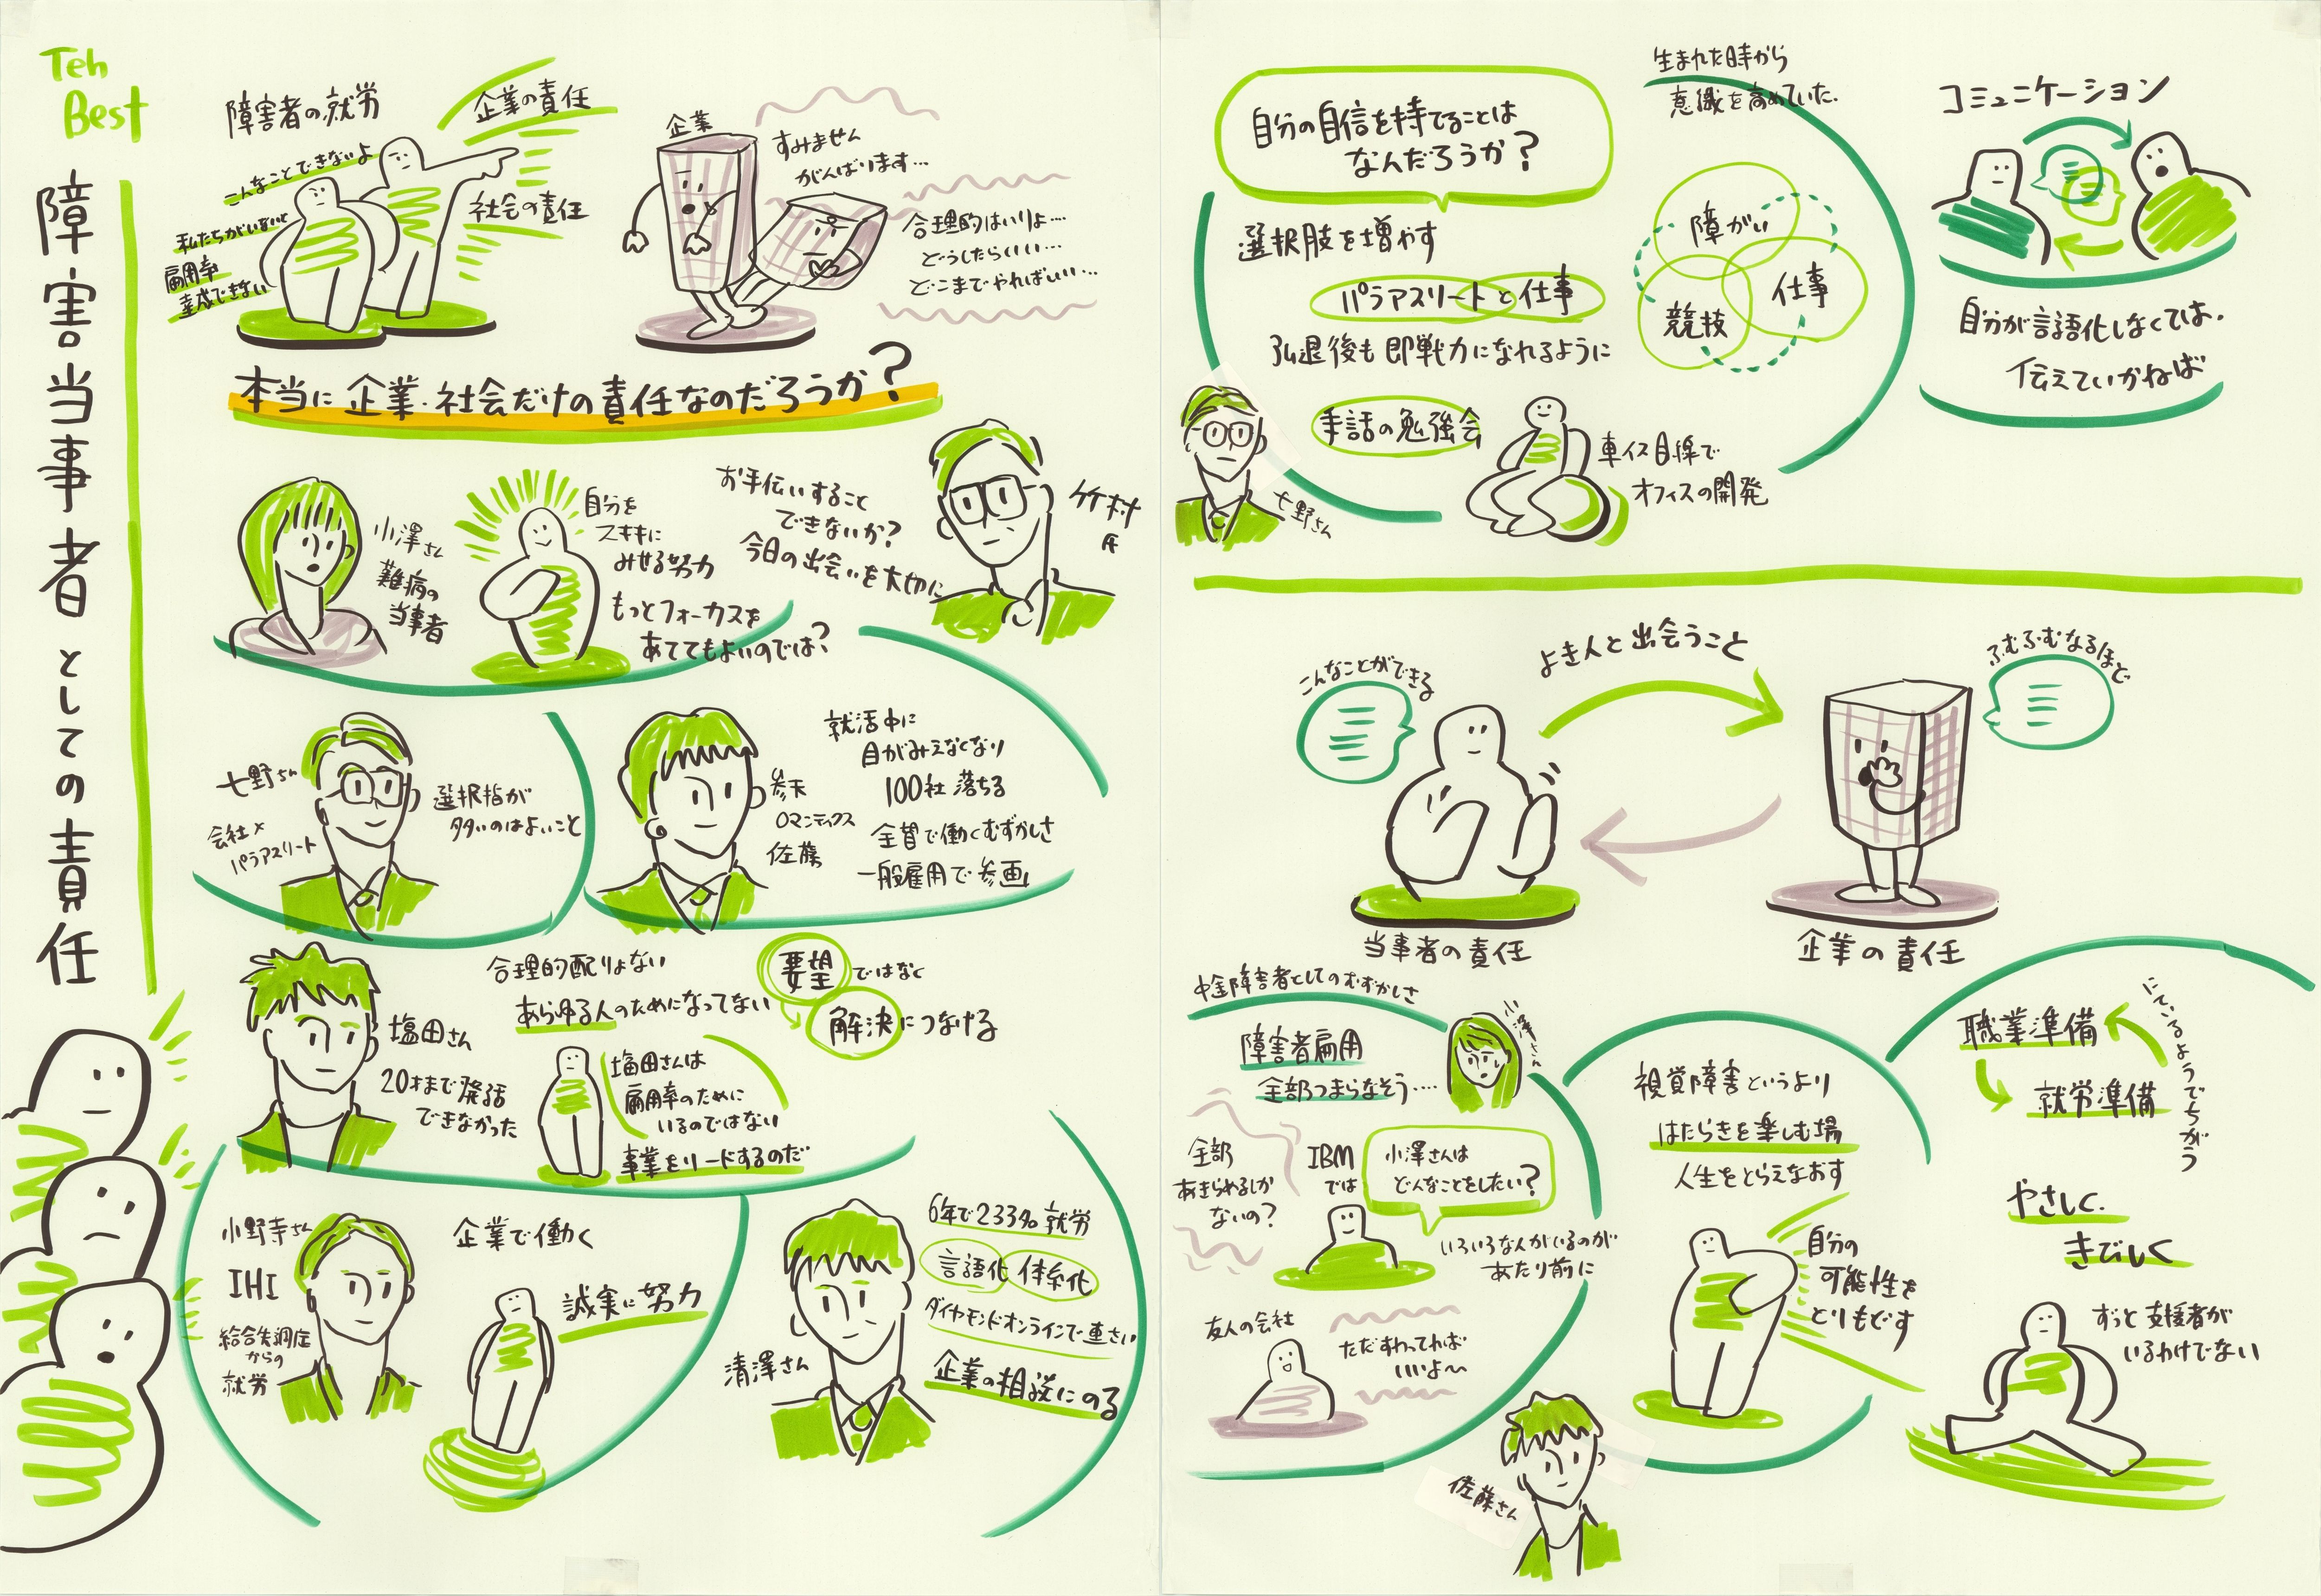 Teh
Best
障害当事者としての責任
障害者の就労
企業の責任
こんなことできないよ
社会の責任
私たちがいないと
雇用率
達成できない
企業
すみません
がんばります…
合理的はいりょ…
どうしたらいい…
どこまでやればいい…
本当に企業・社会だけの責任なのだろうか?
小澤さん
難病の
当事者
自分を
ステキに
みせる努力
もっとフォーカスを
あててもよいのでは?
お手伝いすること
できないか?
今日の出会いを大切に
竹村
氏
七野さん
会社×
パラアスリート
選択指が
多いのはよいこと
参天
ロマンティクス
佐藤
就活中に
目がみえなくなり
100社落ちる
全盲で働くむずかしさ
一般雇用で参画
塩田さん
20才まで発話
できなかった
合理的配りょない
あらゆる人のためになってない
要望ではなく
解決につなげる
塩田さんは
雇用率のために
いるのではない
事業をリードするのだ
小野寺さん
IHI
統合失調症
からの
就労
企業で働く
誠実に努力
清澤さん
6年で233名就労
言語化 体系化
ダイヤモンドオンラインで連さい
企業の相談にのる
自分の自信を持てることは
なんだろうか?
選択肢を増やす
パラアスリートと仕事
引退後も即戦力になれるように
手話の勉強会
七野さん
車イス目線で
オフィスの開発
生まれた時から
意識を高めていた.
障がい
競技
仕事
コミュニケーション
自分が言語化しなくては.
伝えていかねば
こんなことができる
よき人と出会うこと
ふむふむなるほど
当事者の責任
企業の責任
中途障害者としてのむずかしさ
小澤さん
障害者雇用
全部つまらなそう….
全部
あきらめるしか
ないの?
IBM
では
小澤さんは
どんなことをしたい?
いろいろな人がいるのが
あたり前に
友人の会社
ただすわってれば
いいよ〜
視覚障害というより
はたらきを楽しむ場
人生をとらえなおす
自分の
可能性を
とりもどす
佐藤さん
職業準備
就労準備
にているようでちがう
やさしく.
きびしく
ずっと支援者が
いるわけでない